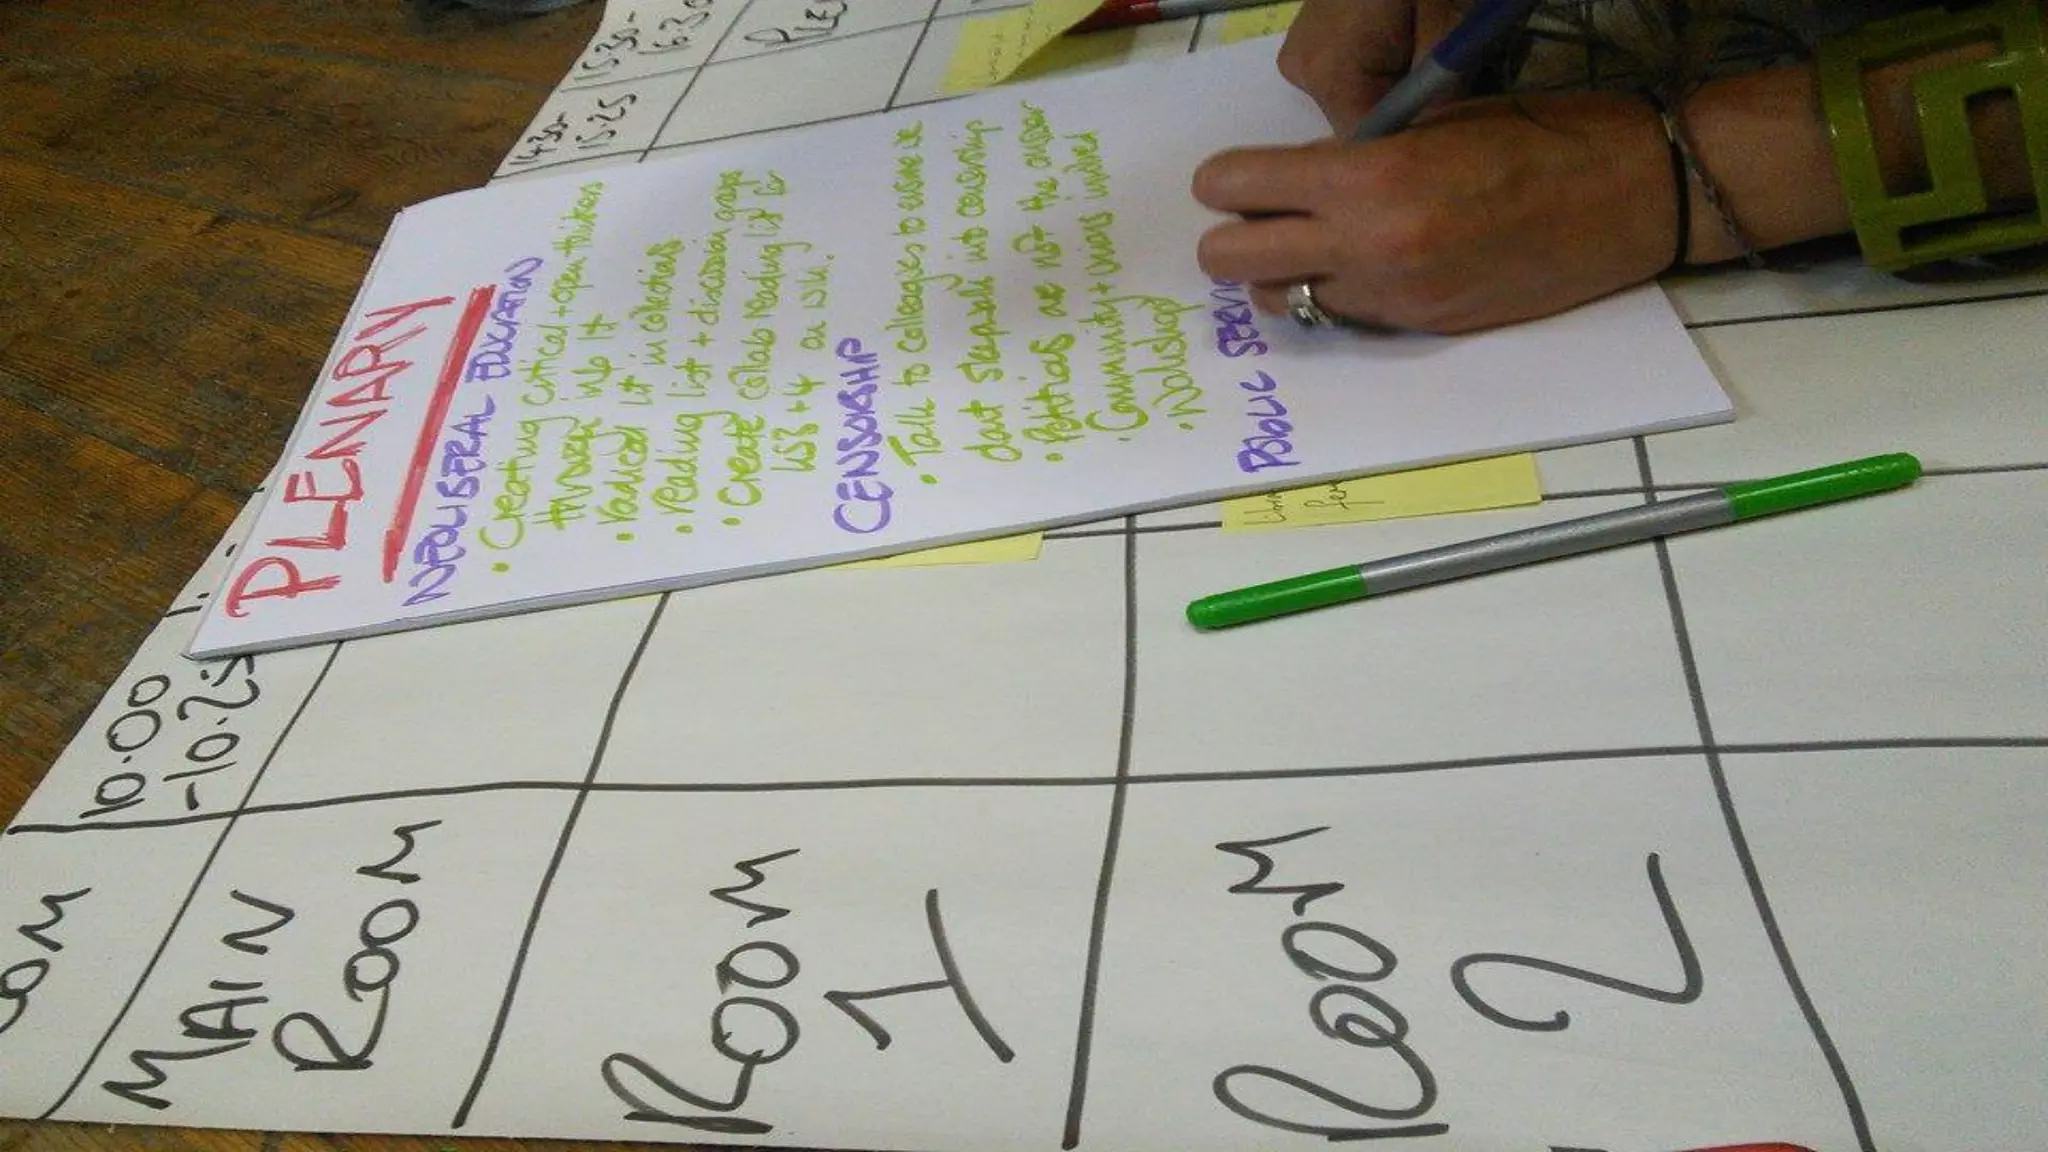 PLENARY
NEOLIBERAL EDUCATION
• Creating critical + open thinkers
through info lit
• Radical lit in collections
• reading list + discussion groups
• Create collab reading list for
on wiki?
CENSORSHIP
• Talk to colleagies to ensure we
don't sleepwalk into censorship
• Petitions are not the answer
• Community + unions involved
• Workshop
PUBLIC SERVI
14.30-
15.25
15.30-
16.30
10.00
-10.25
MAIN
ROOM
ROOM
1
ROOM
2